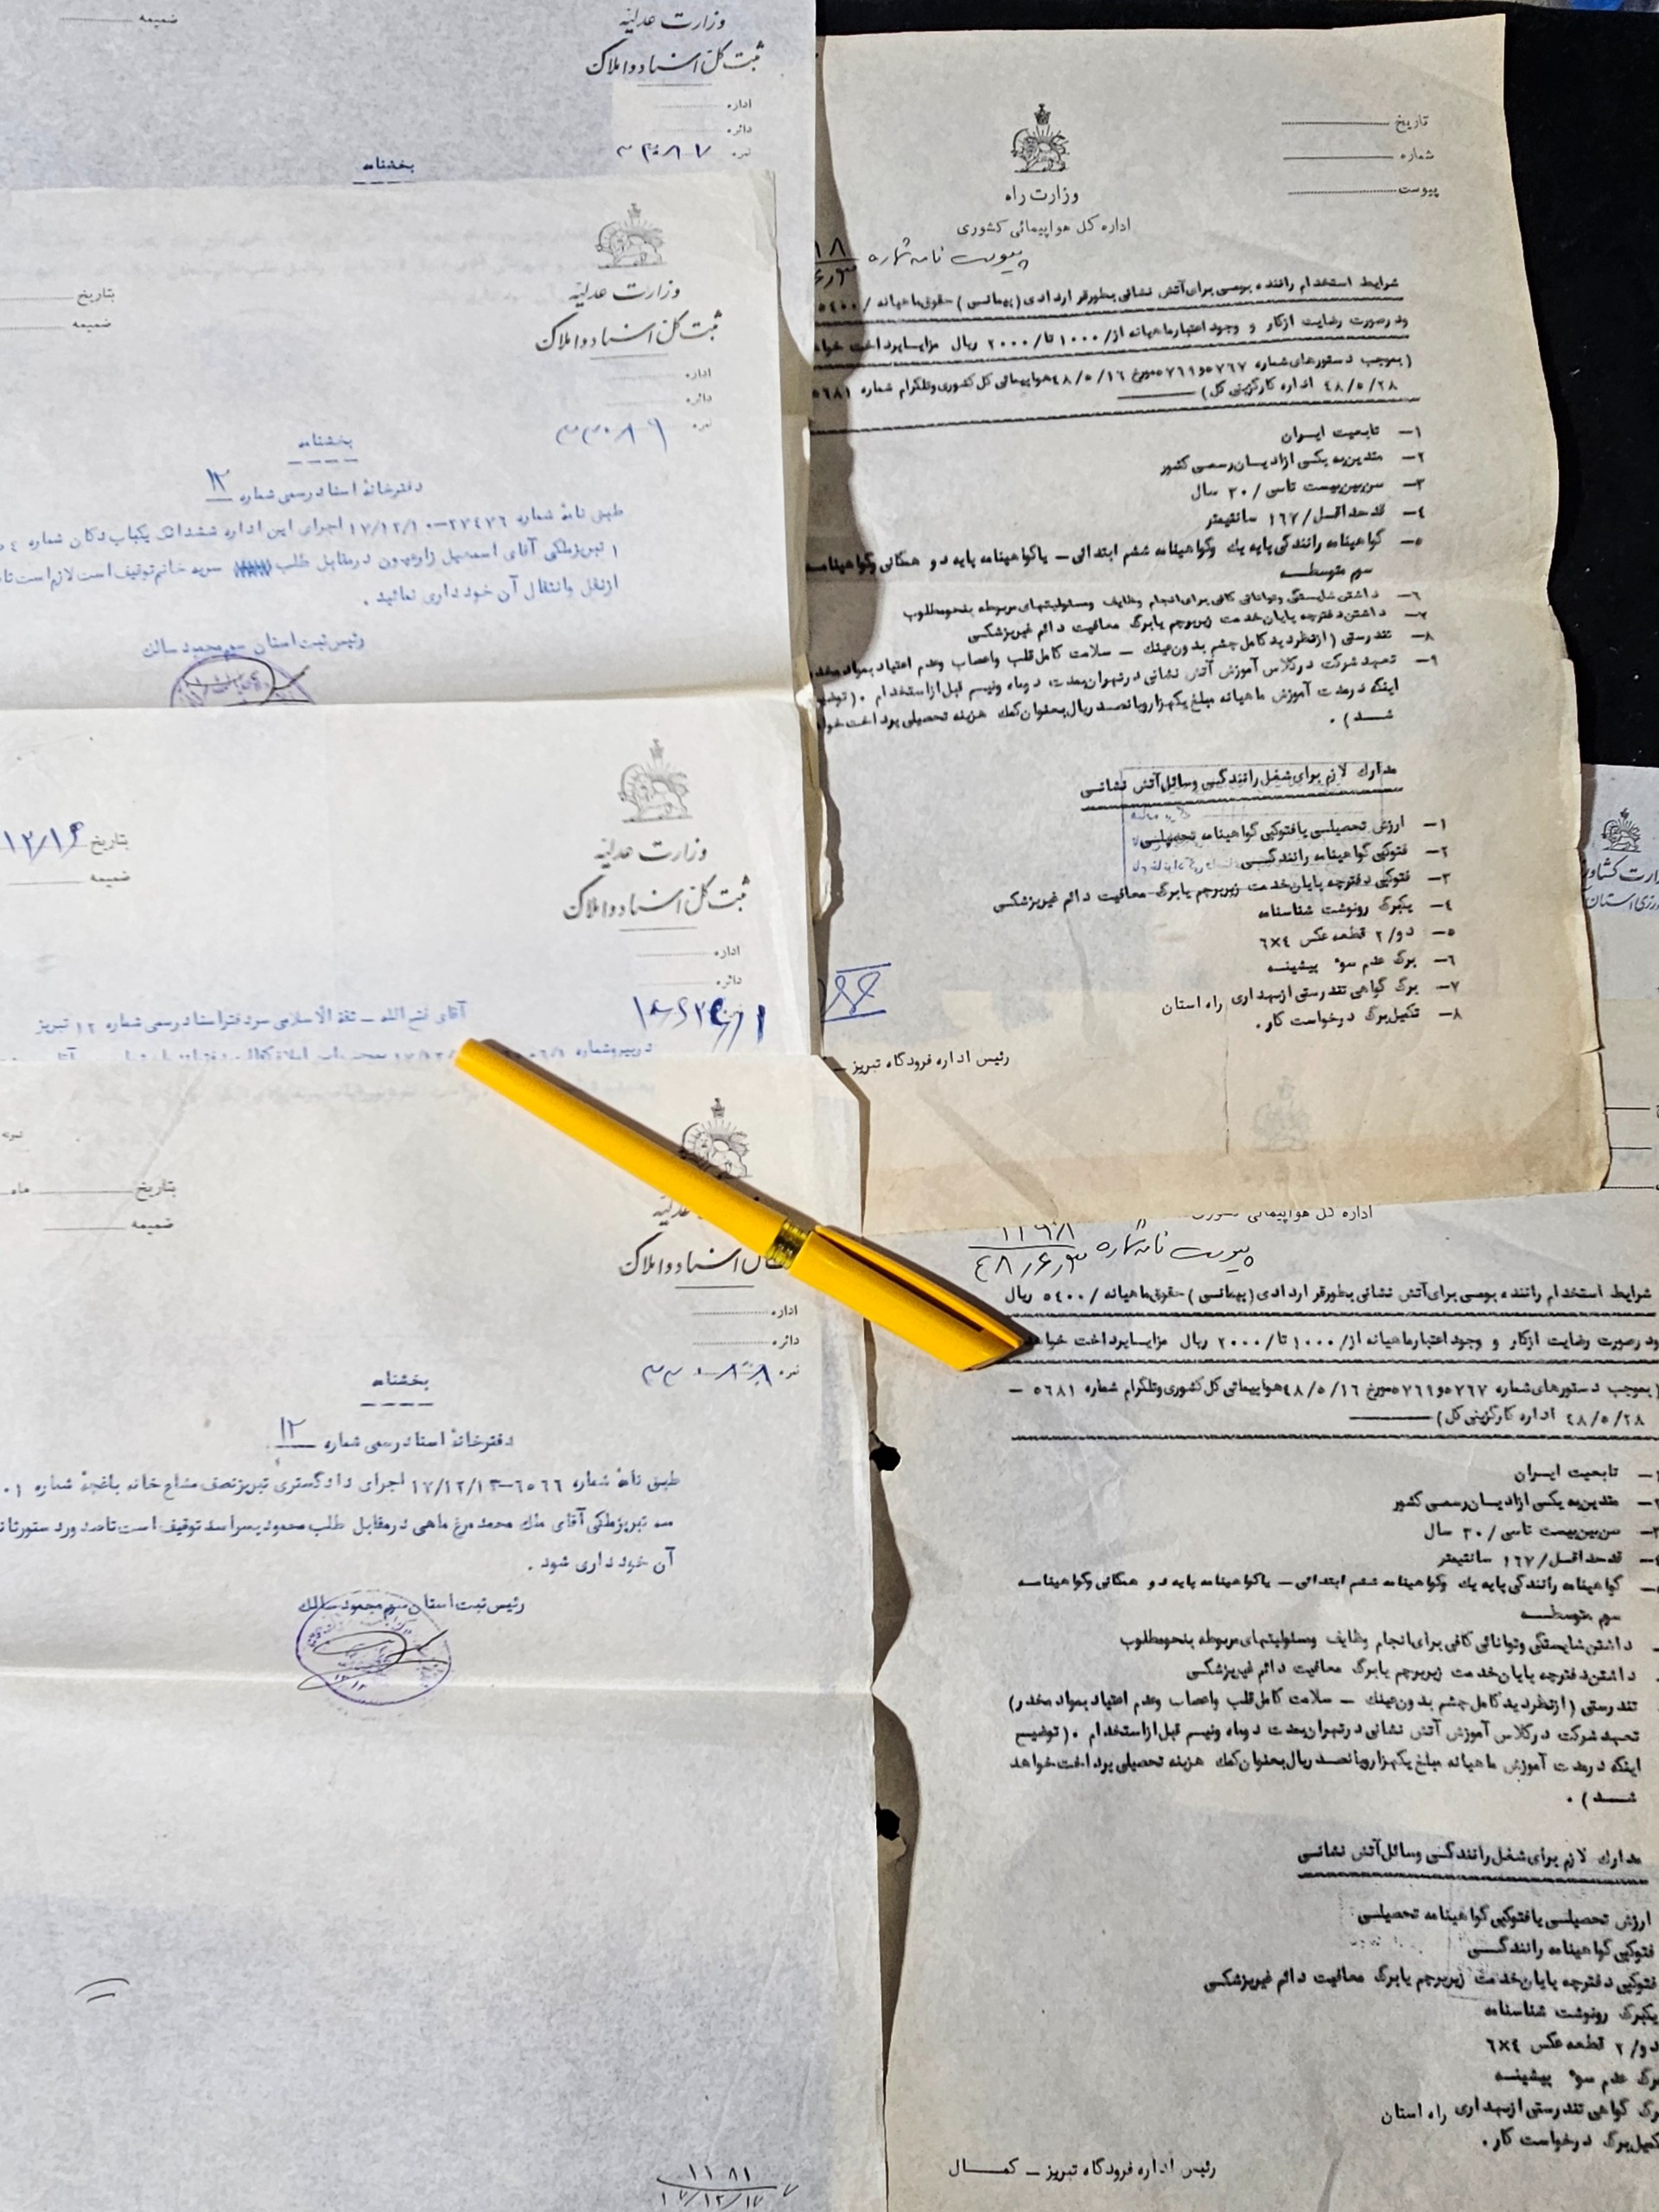 ضمیمه
وزارت عدلیه
ثبت کل اسناد و املاک
اداره
دائره
نمره
بخشنامه
وزارت عدلیه
ثبت کل اسناد و املاک
بتاریخ
ضمیمه
اداره
دائره
نمره ۳۳۰۸۶
بخشنامه
دفترخانهٔ اسناد رسمی شماره ۱۲
طبق نامهٔ شماره ۲۷۴۷۶-۱۷/۱۲/۱۰ اجرای این اداره ششدانگ یکباب دکان شماره
۱ تبریز ملکی آقای اسمعیل درمقابل طلب سرید خانم توقیف است لازم است تا
ازنقل وانتقال آن خود داری نمائید .
رئیس ثبت استان سوم محمود سالک
وزارت عدلیه
ثبت کل اسناد و املاک
بتاریخ ۱۲/۱۶
ضمیمه
اداره
دائره
آقای فتح الله – ثقة الاسلامی سردفتر اسناد رسمی شماره ۱۲ تبریز
درپیروشماره
عدلیه
اسناد و املاک
بتاریخ ماه
ضمیمه
اداره
دائره
نمره ۳۳۰۸۸
بخشنامه
دفترخانهٔ اسناد رسمی شماره ۱۲
طبق نامهٔ شماره ۶۵۶۶-۱۷/۱۲/۱۳ اجرای دادگستری تبریز نصف مشاع خانه باغچهٔ شماره ۰۱
سه تبریز ملکی آقای ملک محمد مرغ ماهی درمقابل طلب محمود توقیف است تا صدور دستور ثانوی
آن خود داری شود .
رئیس ثبت استان سوم محمود سالک
۱۱۰۸۱
۱۷/۱۲/۱۷
تاریخ
شماره
پیوست
وزارت راه
اداره کل هواپیمائی کشوری
پیوست نامه شماره
شرایط استخدام راننده بومی برای آتش نشانی بطور قراردادی (پیمانی) حقوق ماهیانه /۵۴۰۰
ودرصورت رضایت ازکار و وجود اعتبار ماهیانه از/۱۰۰۰ تا/۲۰۰۰ ریال مزایا پرداخت
(بموجب دستورهای شماره ۵۷۶۷و۵۷۶۹مورخ ۴۸/۵/۱۶هواپیمائی کل کشوری وتلگرام شماره ۵۶۸۱
۴۸/۵/۲۸ اداره کارگزینی کل)
۱– تابعیت ایران
۲– متدین به یکی ازادیان رسمی کشور
۳– سن بین بیست تاسی /۳۰ سال
۴– قد حداقل/۱۶۷ سانتیمتر
۵– گواهینامه رانندگی پایه یک وگواهینامه ششم ابتدائی – یا گواهینامه پایه دو همگانی وگواهینامه
سوم متوسطه
۶– داشتن شایستگی وتوانائی کافی برای انجام وظایف ومسئولیتهای مربوطه بنحومطلوب
۷– داشتن دفترچه پایان خدمت زیرپرچم یابرگ معافیت دائم غیرپزشکی
۸– تندرستی (ازنظر دید کامل چشم بدون عینک – سلامت کامل قلب واعصاب وعدم اعتیاد بمواد مخدر
۹– تعهد شرکت درکلاس آموزش آتش نشانی درتهران بمدت دوماه ونیم قبل ازاستخدام .(
اینکه درمدت آموزش ماهیانه مبلغ یکهزاروپانصد ریال بعنوان کمک هزینه تحصیلی پرداخت
شد ) .
مدارک لازم برای شغل رانندگی وسائل آتش نشانی
۱– ارزش تحصیلی یا فتوکپی گواهینامه تحصیلی
۲– فتوکپی گواهینامه رانندگی
۳– فتوکپی دفترچه پایان خدمت زیرپرچم یابرگ معافیت دائم غیرپزشکی
۴– یکبرگ رونوشت شناسنامه
۵– دو/۲ قطعه عکس ۶×۴
۶– برگ عدم سوء پیشینه
۷– برگ گواهی تندرستی ازبهداری راه استان
۸– تکمیل برگ درخواست کار .
رئیس اداره فرودگاه تبریز –
اداره کل هواپیمائی
پیوست نامه شماره ۱۱۹۰۸
شرایط استخدام راننده بومی برای آتش نشانی بطور قراردادی (پیمانی) حقوق ماهیانه /۵۴۰۰ ریال
ودرصورت رضایت ازکار و وجود اعتبار ماهیانه از/۱۰۰۰ تا/۲۰۰۰ ریال مزایا پرداخت
(بموجب دستورهای شماره ۵۷۶۷و۵۷۶۹مورخ ۴۸/۵/۱۶هواپیمائی کل کشوری وتلگرام شماره ۵۶۸۱ –
۴۸/۵/۲۸ اداره کارگزینی کل)
تابعیت ایران
متدین به یکی ازادیان رسمی کشور
سن بین بیست تاسی /۳۰ سال
قد حداقل/۱۶۷ سانتیمتر
گواهینامه رانندگی پایه یک وگواهینامه ششم ابتدائی – یا گواهینامه پایه دو همگانی وگواهینامه
سوم متوسطه
داشتن شایستگی وتوانائی کافی برای انجام وظایف ومسئولیتهای مربوطه بنحومطلوب
داشتن دفترچه پایان خدمت زیرپرچم یابرگ معافیت دائم غیرپزشکی
تندرستی (ازنظر دید کامل چشم بدون عینک – سلامت کامل قلب واعصاب وعدم اعتیاد بمواد مخدر)
تعهد شرکت درکلاس آموزش آتش نشانی درتهران بمدت دوماه ونیم قبل ازاستخدام .( توضیح
اینکه درمدت آموزش ماهیانه مبلغ یکهزاروپانصد ریال بعنوان کمک هزینه تحصیلی پرداخت خواهد
شد ) .
مدارک لازم برای شغل رانندگی وسائل آتش نشانی
ارزش تحصیلی یا فتوکپی گواهینامه تحصیلی
فتوکپی گواهینامه رانندگی
فتوکپی دفترچه پایان خدمت زیرپرچم یابرگ معافیت دائم غیرپزشکی
یکبرگ رونوشت شناسنامه
دو/۲ قطعه عکس ۶×۴
برگ عدم سوء پیشینه
برگ گواهی تندرستی ازبهداری راه استان
تکمیل برگ درخواست کار .
رئیس اداره فرودگاه تبریز – کمال